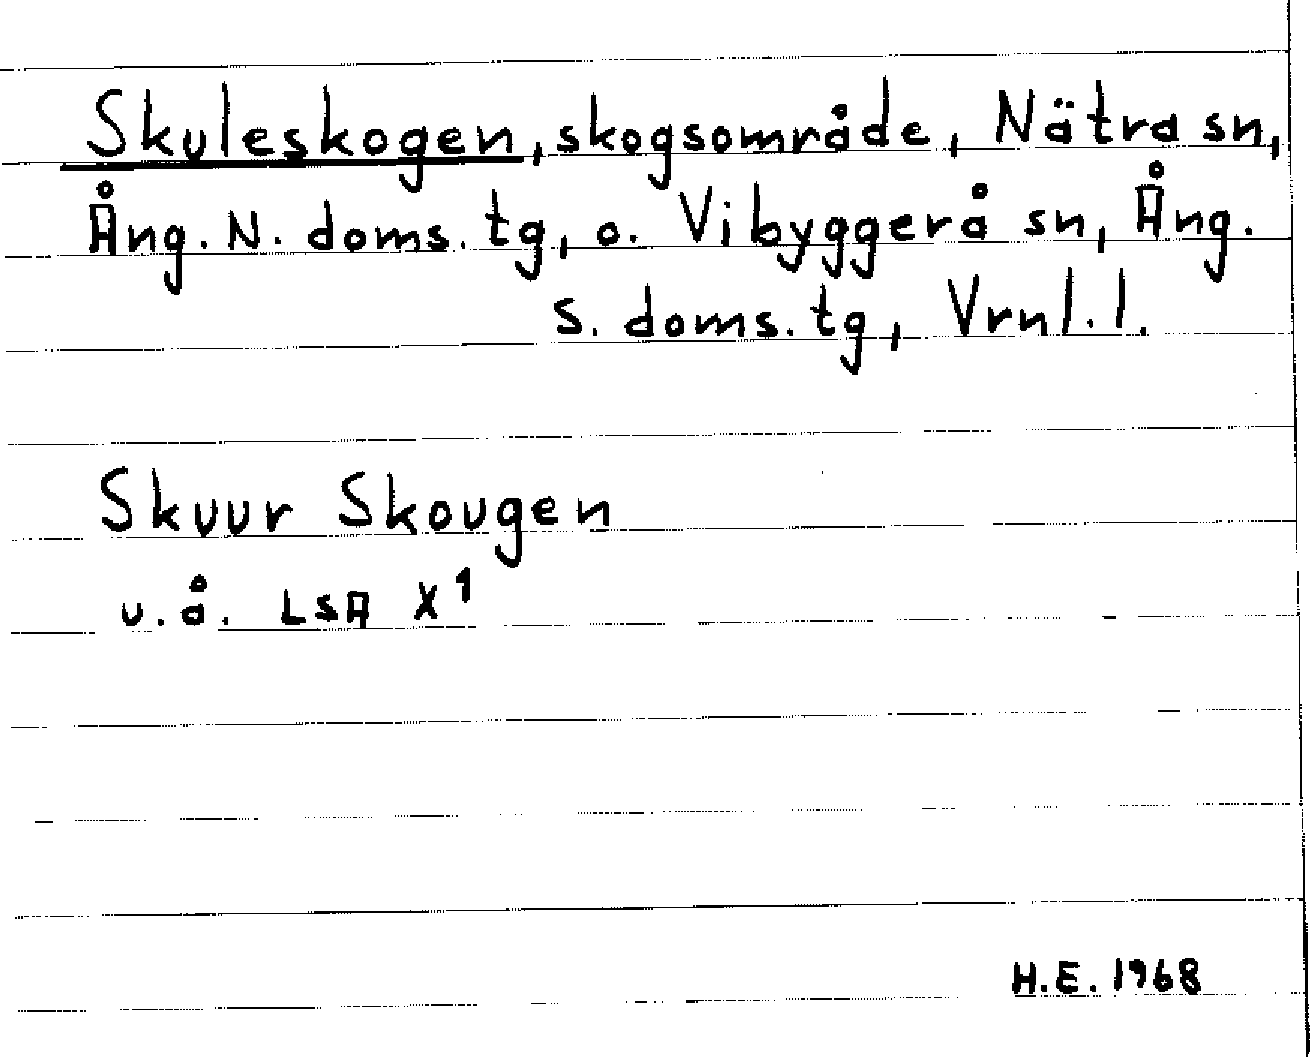 Skuleskogen, skogsområde, Nätra sn,
Ång. N. doms. tg, o. Vibyggerå sn, Ång.
S. doms. tg, Vrnl. l.
Skuur Skougen
u. å. LSA X¹
H.E. 1968